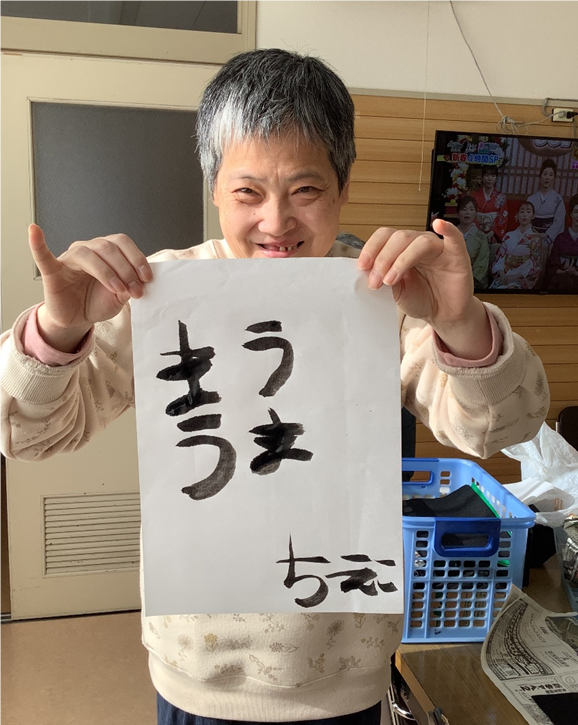 うま
まう
ちえ